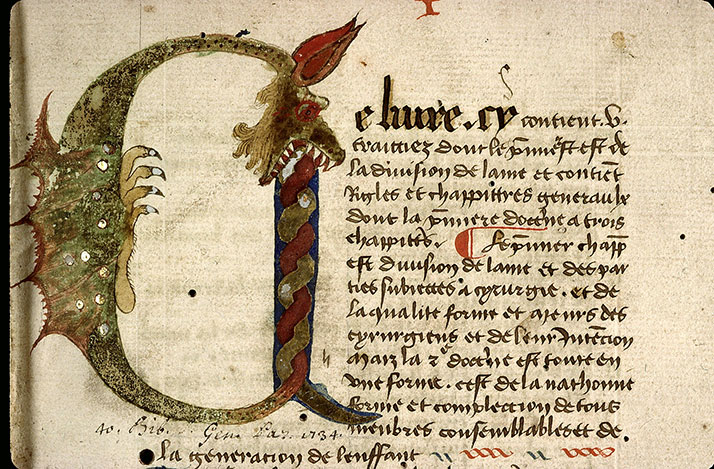 Ce liure . cy contient . v.
traictiez dont le p̄mier est de
la diuision de lame et contiēt
Rigles et chappittres generaulx
dont la p̄miere doctīe a trois
chappitr̄s . ¶ Le p̄mier chapp̄
est diuision de lame et des par
ties subiectes a cyrurgie . et de
la qualite forme et meurs des
cyrurgiens et de leur Intēcion
Mais la 2e doctīe est toute en
vne forme . cest de la nathomie
forme et complection de tous
membres consemblables et de
40. Bib. Gen. Par. 1734.
la generacion de lenffant